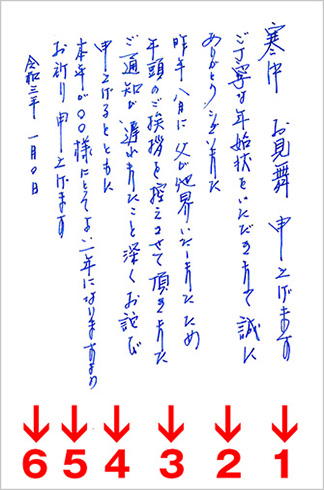 寒中 お見舞 申し上げます
ご丁寧な年始状をいただきまして誠に
ありがとうございました
昨年八月に父が他界いたしましたため
年頭のご挨拶を控えさせて頂きました
ご通知が遅れましたこと深くお詫び
申し上げるとともに
本年が〇〇様にとってよい一年になりますよう
お祈り申し上げます
令和三年 一月〇日
1
2
3
4
5
6